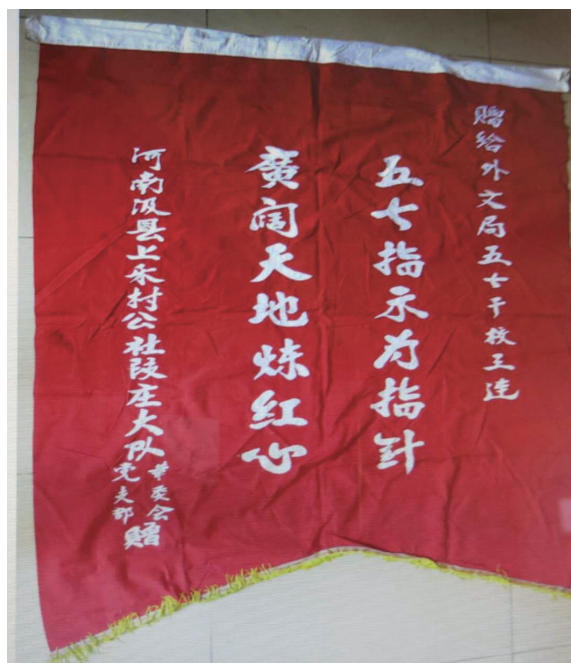 赠给外文局五七干校三连
五七指示为指针
廣阔天地炼红心
河南汲县上乐村公社陵庄大队
革委会
党支部
赠